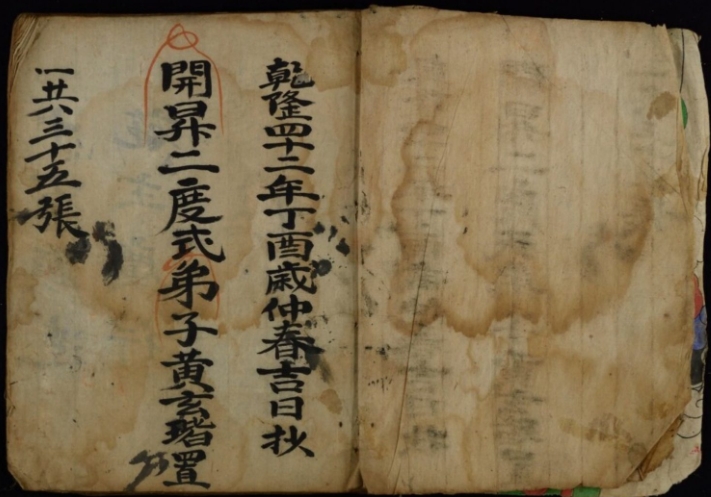 乾隆四十二年丁酉歳仲春吉日抄
開昇二度式弟子黄玄堦置
一共六三十五張